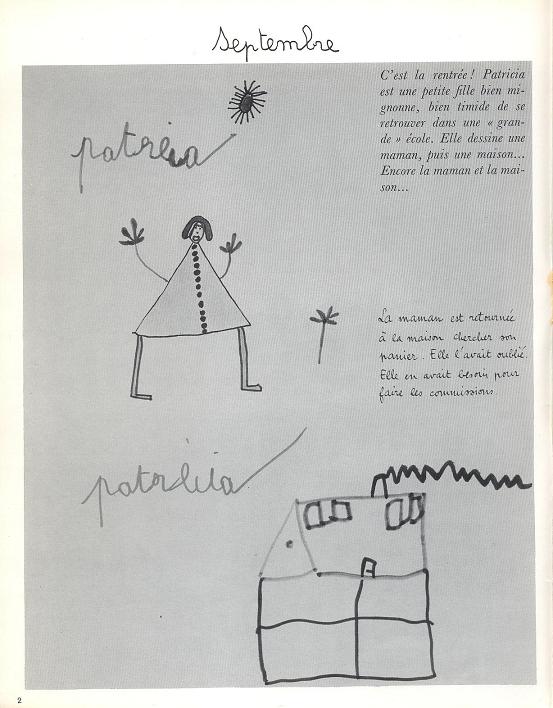 Septembre
C'est la rentrée ! Patricia
est une petite fille bien mi-
gnonne, bien timide de se
retrouver dans une « gran-
de » école. Elle dessine une
maman, puis une maison...
Encore la maman et la mai-
son...
patricia
La maman est retournée
à la maison chercher son
panier. Elle l'avait oublié.
Elle en avait besoin pour
faire les commissions.
patricia
2